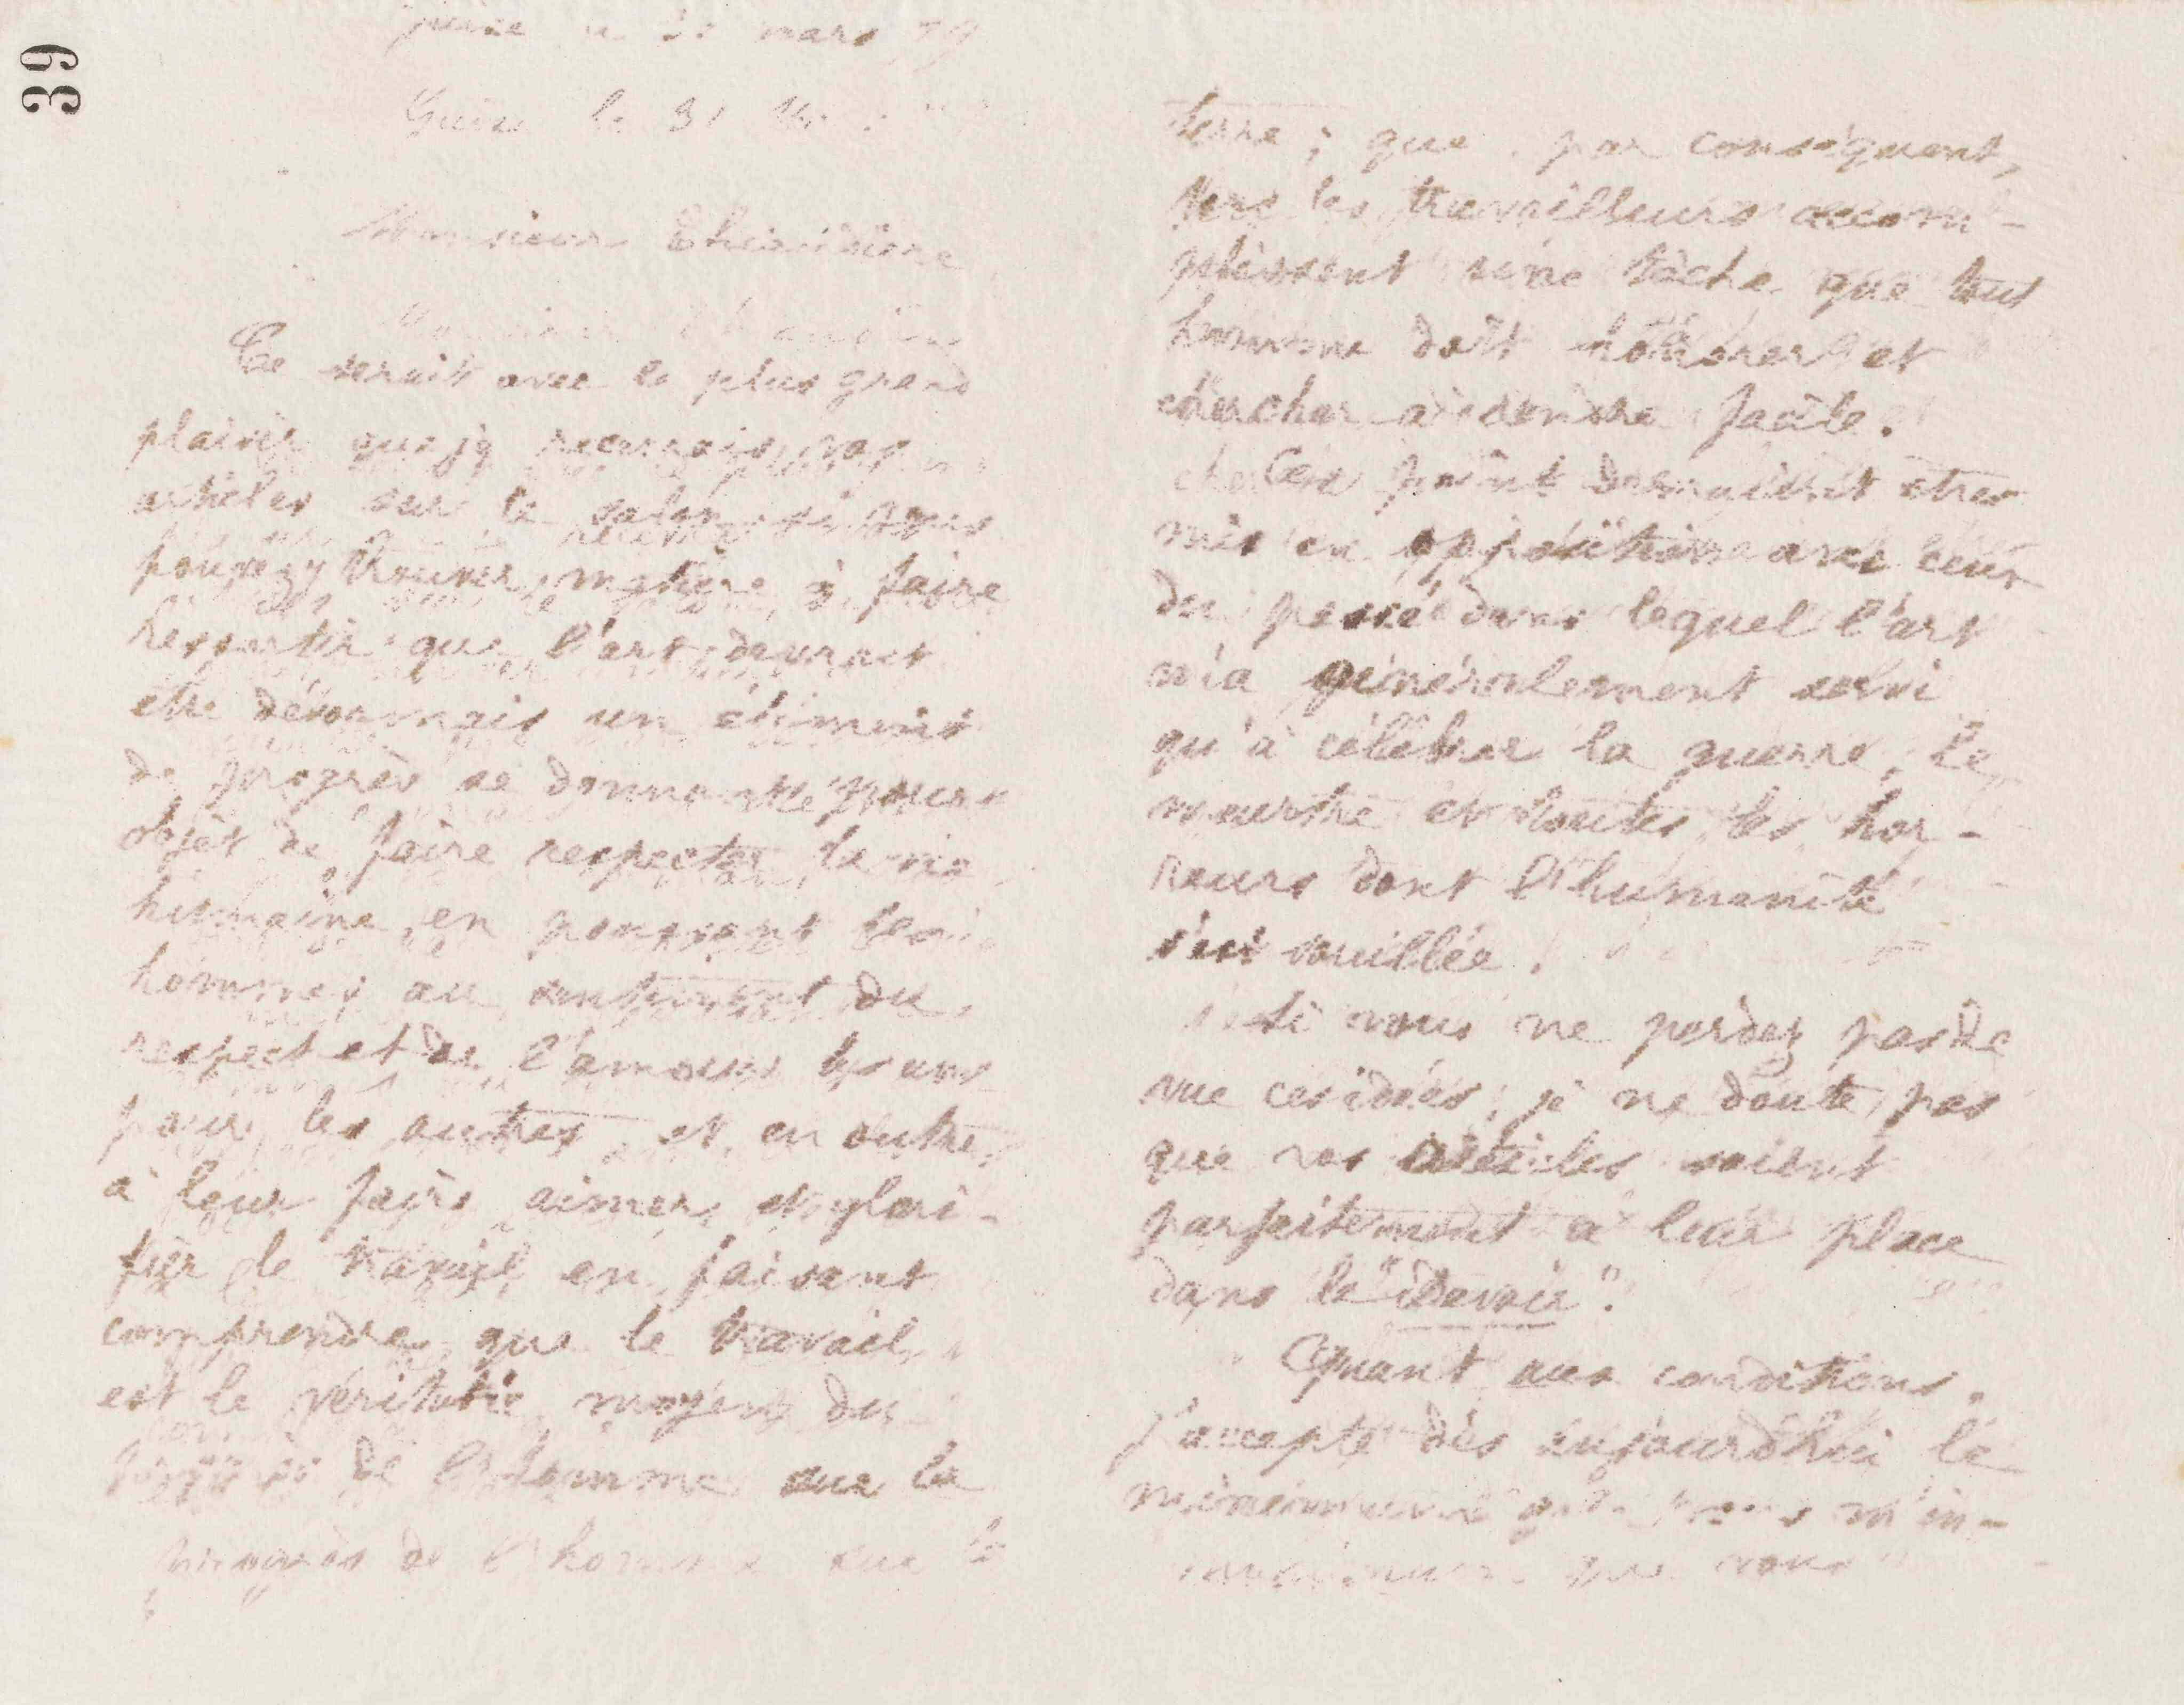 39
Guise le 31 mars 79
Guise le 31
Monsieur
Monsieur
Ce serait avec le plus grand
plaisir que je recevrais vos
articles sur le salon si vous
pouvez y trouver matière à faire
ressortir que l'art devrait
etre désormais un élément
de progrès se donnant pour
objet de faire respecter la vie
humaine, en poussant les
hommes au sentiment du
respect et de l'amour les uns
pour les autres, et, en outre,
à leur faire aimer et glori-
fier le travail en faisant
comprendre que le travail
est le véritable moyen du
progrès de l'homme sur la
progrès de l'homme sur la
terre; que par conséquent,
les travailleurs accom-
plissent une tâche que tout
homme doit honorer et
chercher à rendre facile.
Ces points devraient etres
mis en opposition avec ceux
du passé dans lequel l'art
n'a généralement servi
qu'à célébrer la guerre, le
meurtre et toutes les hor-
reurs dont l'humanité
s'est souillée.
Si vous ne perdez pas de
vue ces idées, je ne doute pas
que vos articles soient
parfaitement à leur place
dans le "Devoir".
Quant aux conditions,
j'accepte dès aujourd'hui le
minimum que vous m'in-
minimum que vous